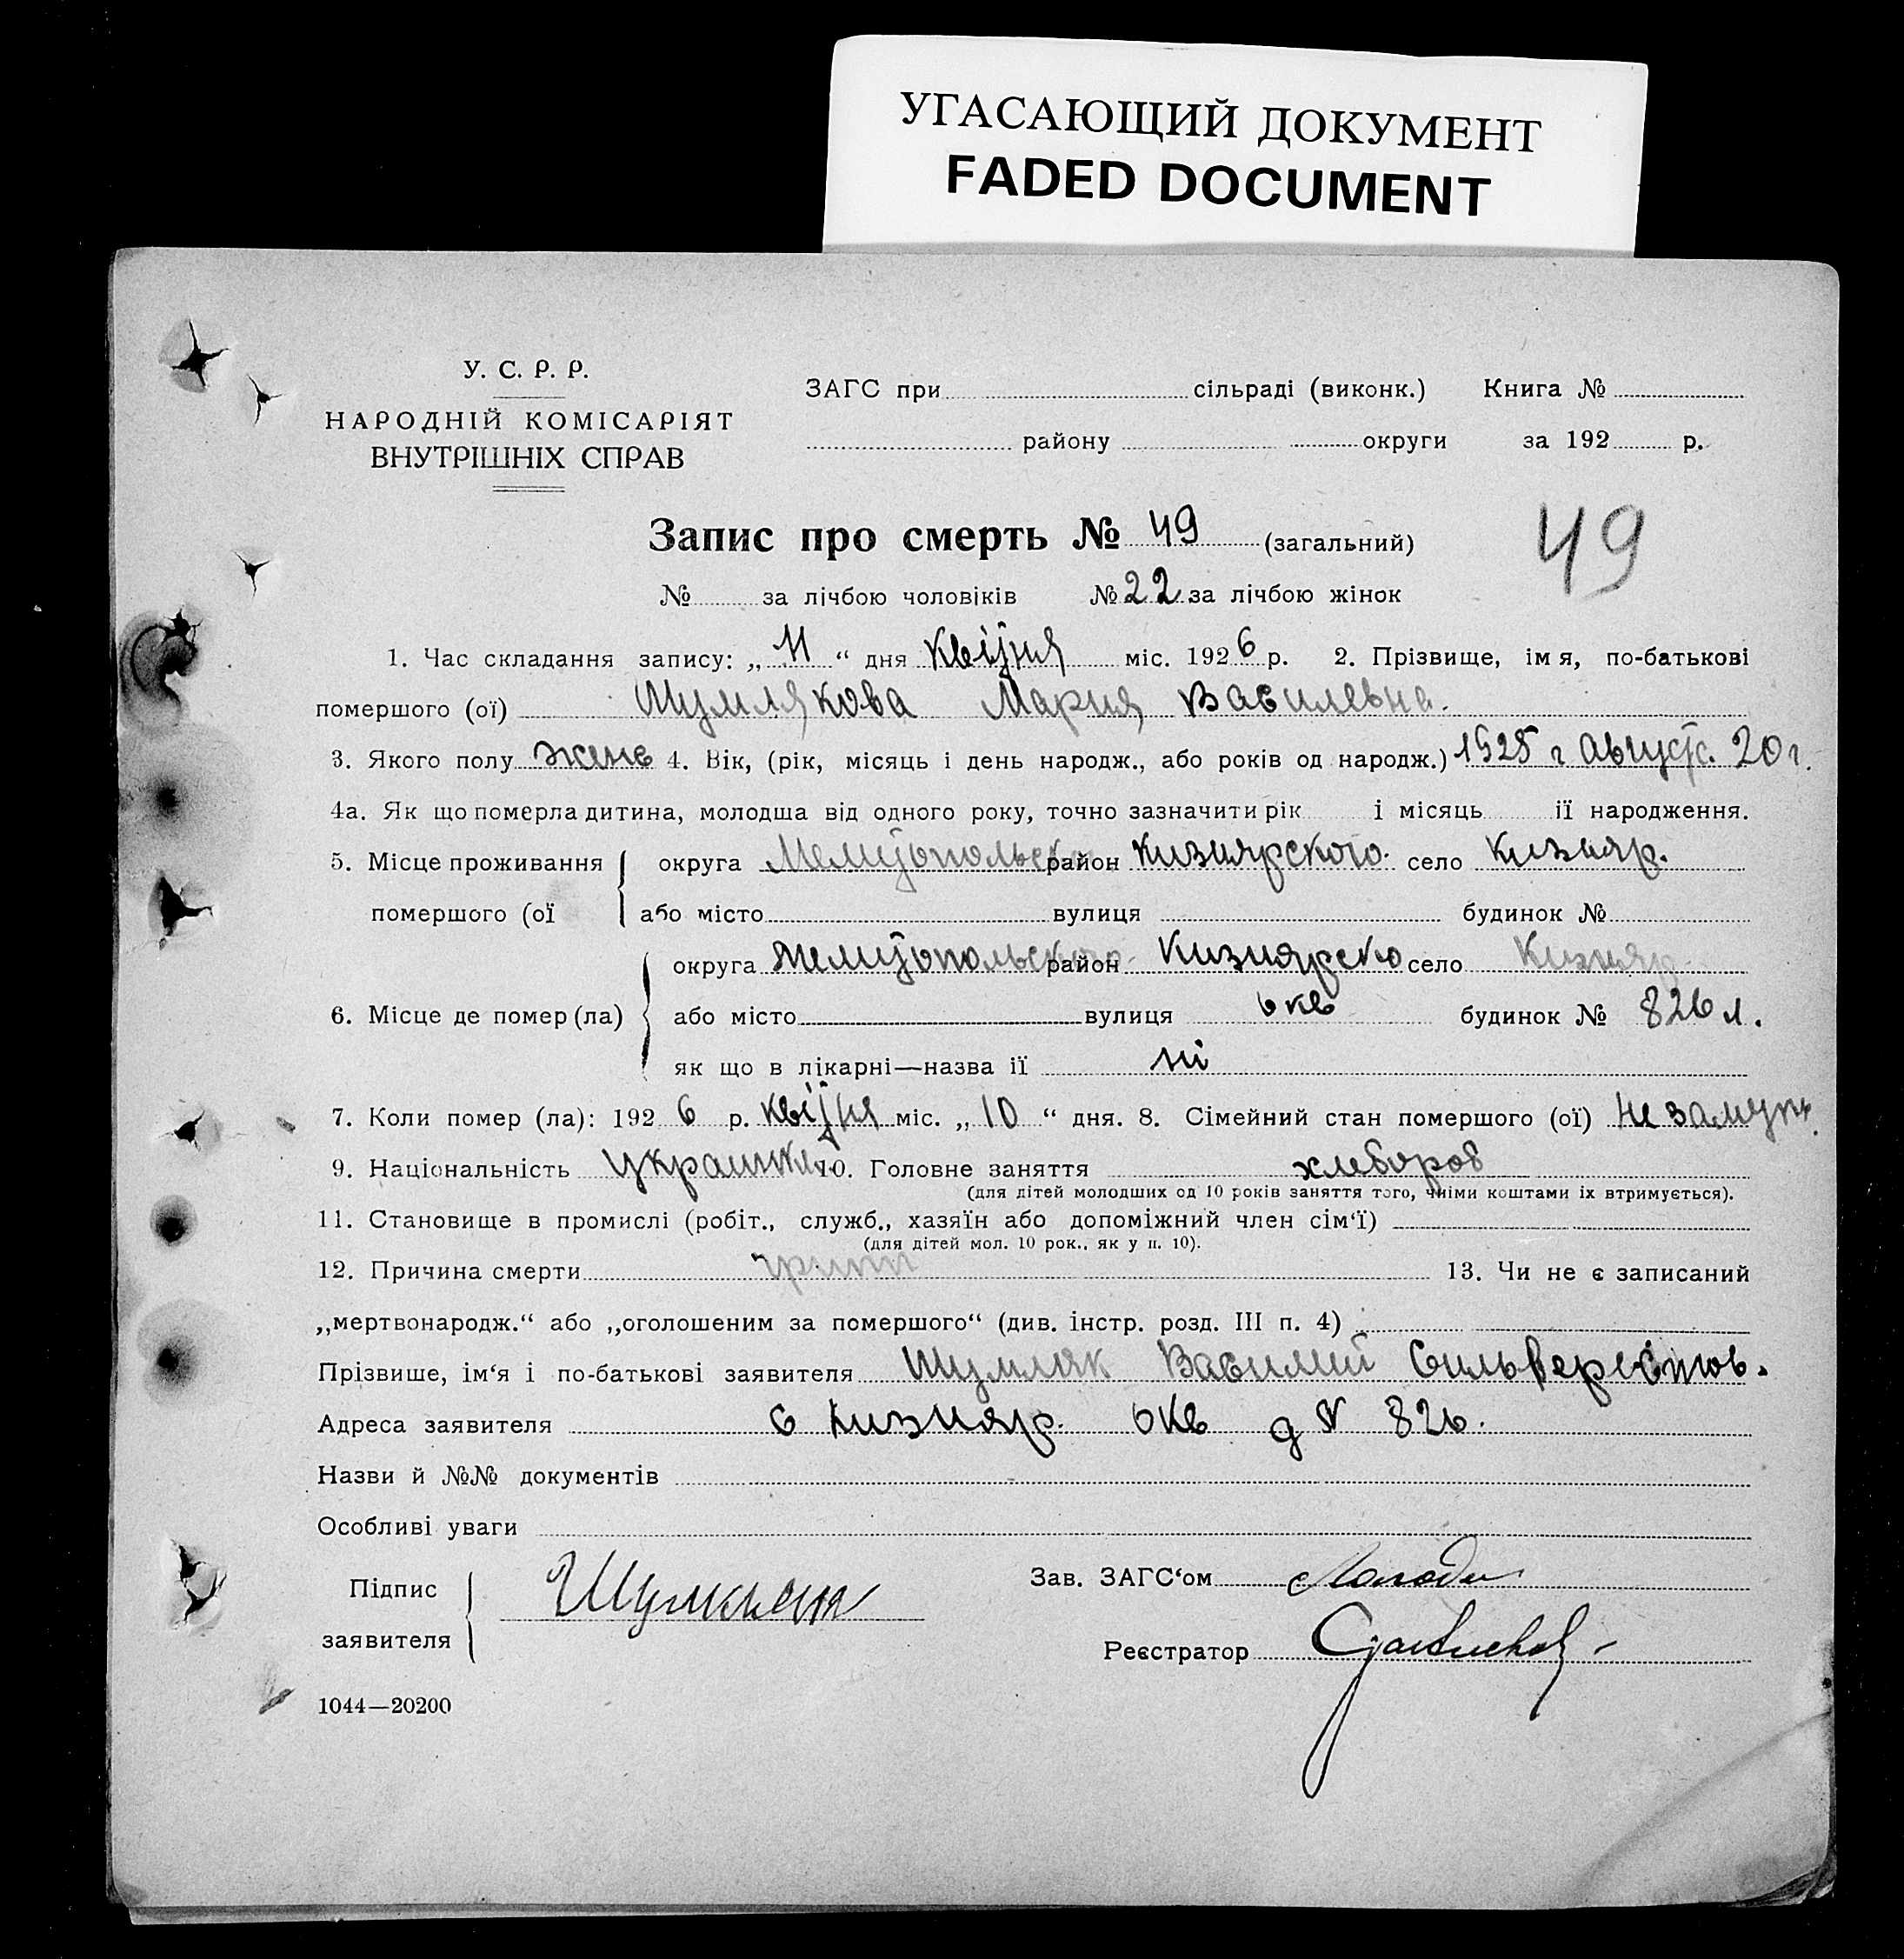 УГАСАЮЩИЙ ДОКУМЕНТ
FADED DOCUMENT
У. С. Р. Р.
НАРОДНІЙ КОМІСАРІЯТ
ВНУТРІШНІХ СПРАВ
ЗАГС при сільраді (виконк.) Книга №
району округи за 192 р.
Запис про смерть № 49 (загальний)
49
№ за лічбою чоловіків № 22 за лічбою жінок
1. Час складання запису: „ 11 “ дня квітня міс. 1926 р. 2. Прізвище, імя, по-батькові
помершого (ої) Шумлякова Мария Василевна.
3. Якого полу жене 4. Вік, (рік, місяць і день народж., або років од народж.) 1925 г Август. 20 г.
4а. Як що померла дитина, молодша від одного року, точно зазначити рік і місяць її народження.
5. Місце проживання округа Мелитопольско район Кизиярского. село Кизияр.
помершого (ої або місто вулиця будинок №
округа Мелитопольского. район Кизиярско село Кизияр
6. Місце де помер (ла) або місто вулиця 6 кв будинок № 826 л.
як що в лікарні—назва її ні
7. Коли помер (ла): 192 6 р. квітня міс. „ 10 “ дня. 8. Сімейний стан помершого (ої) не замуж.
9. Національність 10. Головне заняття хлебороб
(для дітей молодших од 10 років заняття того, чиїми коштами їх втримується).
11. Становище в промислі (робіт., служб., хазяїн або допоміжний член сім‘ї)
(для дітей мол. 10 рок., як у п. 10).
12. Причина смерти грипп 13. Чи не є записаний
„мертвонародж.“ або „оголошеним за помершого“ (див. інстр. розд. III п. 4)
Прізвише, ім‘я і по-батькові заявителя Шумляк Василий Сильверстов.
Адреса заявителя с Кизияр. 6 кв д № 826.
Назви й №№ документів
Особливі уваги
Підпис Зав. ЗАГС‘ом
заявителя Шумляк
Реєстратор
1044—20200